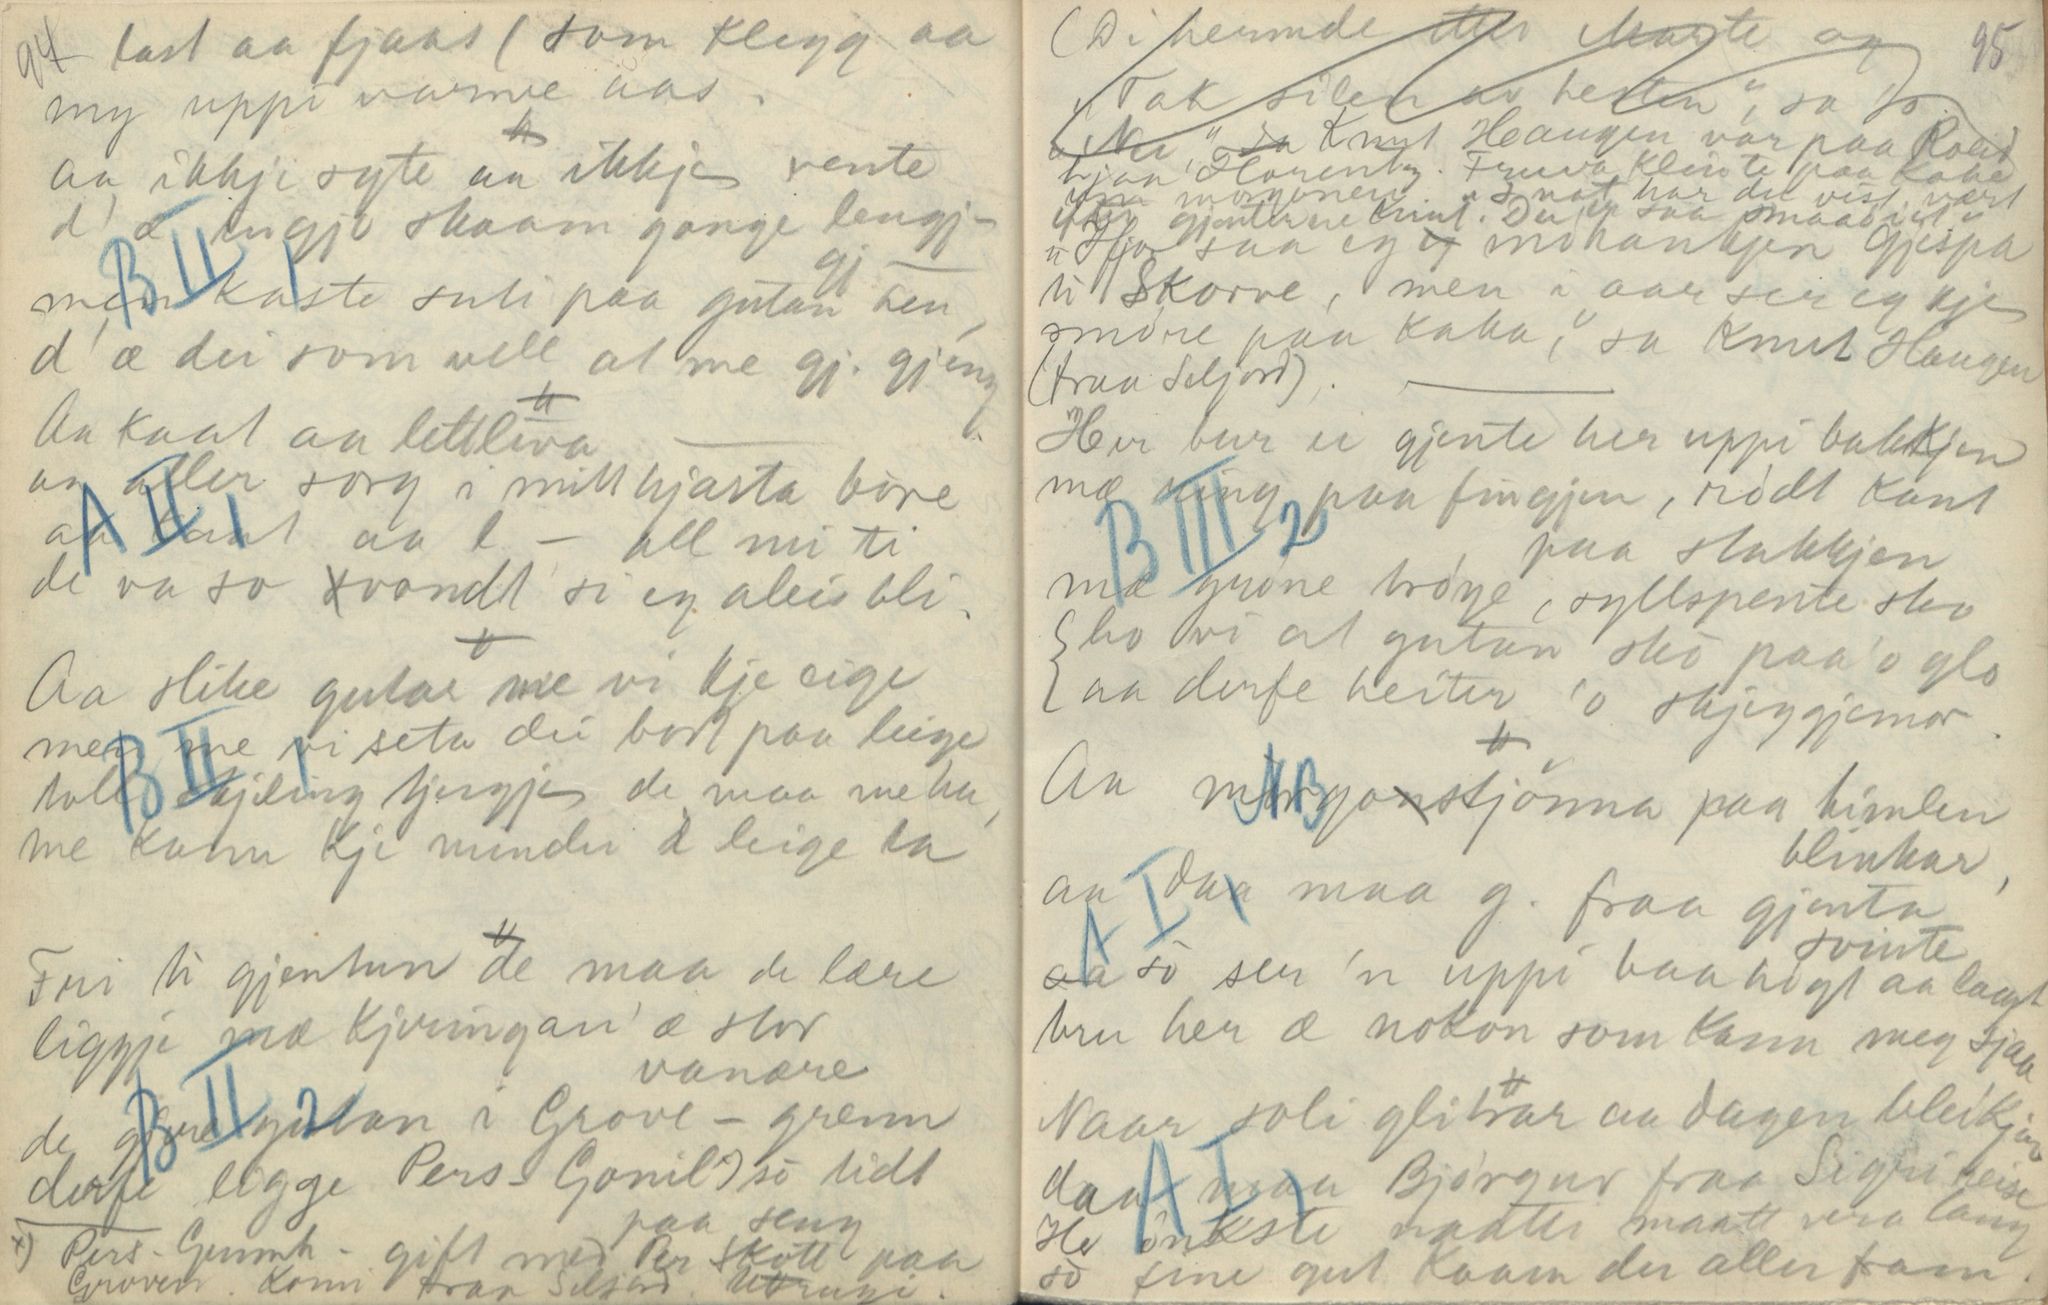 94 last aa fjaas (som klegg aa
my uppi varme aas.
aa ikkje syte aa ikkje vente
d'æ ingjo skaam gange lengj-
BII 1
gj
men kaste suti paa gutan hen,
d'æ dei som vell at me gj. gjeng
Aa kaat aa lettliva
aa aller sorg i mitt hjarta bòre
AII 1
aa kaat aa l – all mi ti
de va so vondt si eg aleis bli.
Aa slike gutar me vi kje eige
men me vi seta dei bort paa leige
BII 1
toll skjeling kjergje de maa me ha,
me kann kje minder i leige ta
Fri ti gjentun de maa de lære
liggje mæ kjeringan' æ stor
vanære
BII 2
de gjere gutan i Grove – grenn
derfe ligge Pers-Gonil x) sò tidt
paa seng
x) Pers-Gunnh- gift med Per Skott paa
Groven. Komi fraa Seljord.
95
(Di hermde etter Marte og
"Tak silen av hesten", sa 'o.
"Nei," sa Knut Haugen var paa
hjaa Florentz. Fruva kleinte paa kake
um morgonen. "I nat har det vist vært
gjenterne hint". Dei er saa smaa
"I fjor saa eg mòkankjen gjespa
ti Skorve, men i aar ser eg kje
smòre paa kaka," sa Knut Haugen
(fraa Seljord).
Her bur ei gjente her uppi bakkjen
mæ ring paa fingjen, ròdt kant
paa stakkjen
BIII 2
mæ gròne tròye, syllspente sko
ho vi at gutan sko paa 'o glo
aa derfe heiter 'o skjeggjemor.
Aa morgonstjònna paa himlen
blinkar,
NB
AI 1
aa daa maa g. fraa gjenta
svinte
sò ser 'n uppi baa hògt aa laagt
tru her æ nokon som kann meg sjaa
Naar soli glitrar aa dagen bleikjar
AI 1
daa maa Bjòrgur fraa Sigri reise
He ònkste naatti maatt vera lang
sò fine gut kaam der aller fram.